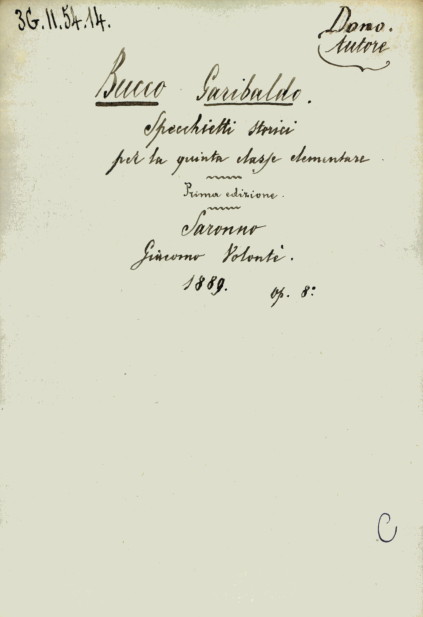 3G.11.54.14.
Dono.
Autore
Bucco Garibaldo.
Specchietti storici
per la quinta classe elementare
Prima edizione.
Saronno
Giacomo Volontè.
1889. op. 8°
C